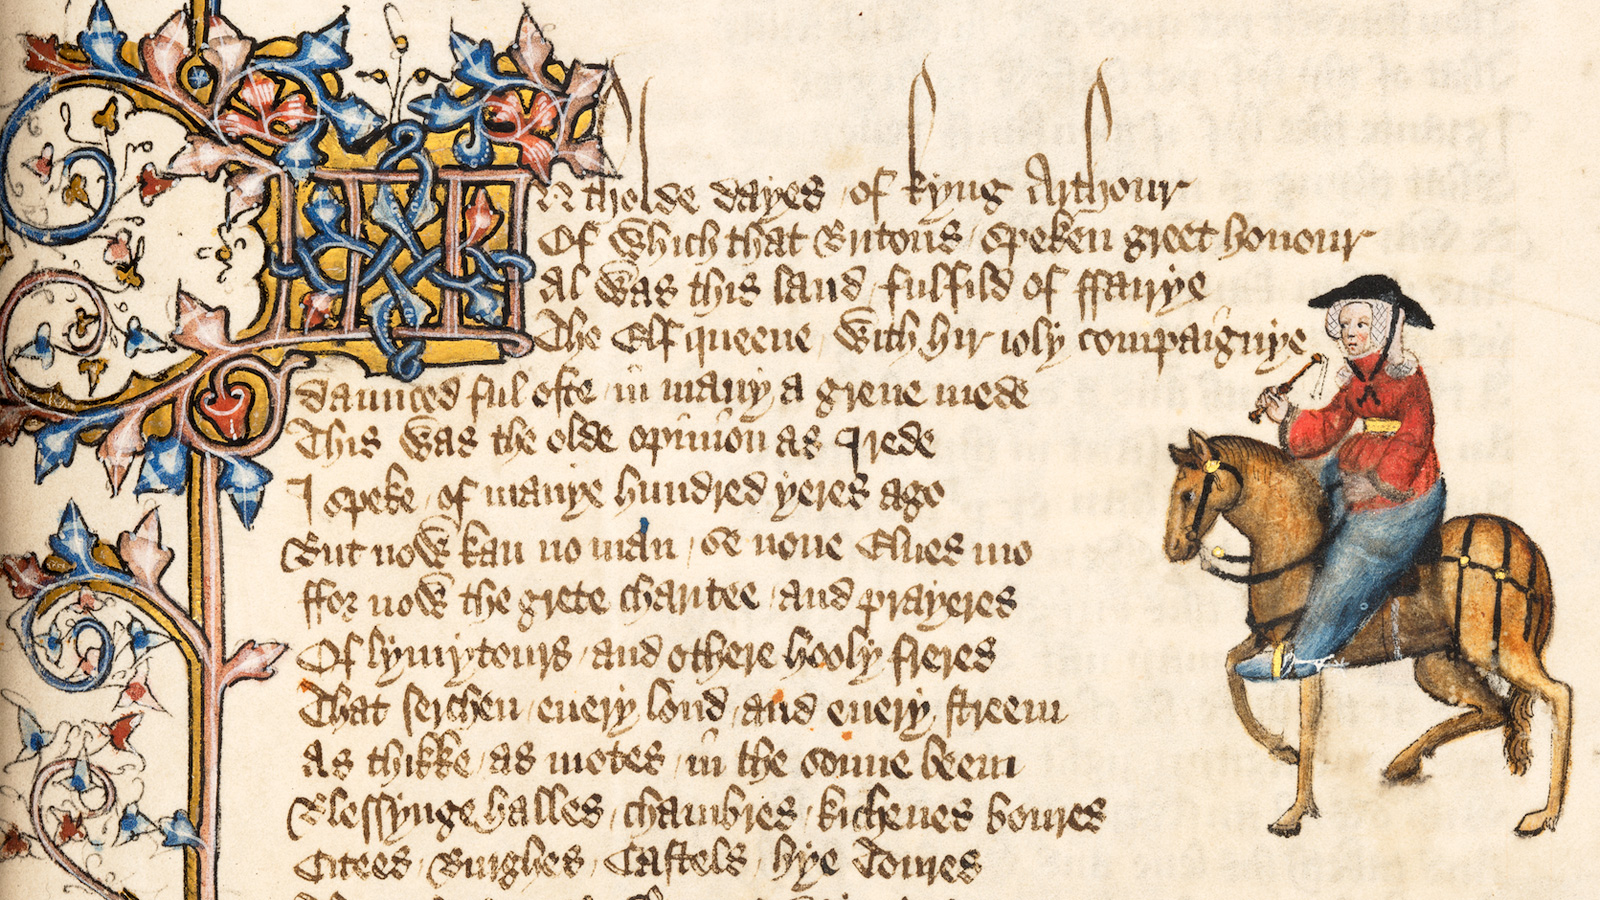 IN tholde dayes / of kyng Arthour
Of which that Britons / speken greet honour
Al was this land / fulfild of ffairye
The Elf queene / with hir ioly compaignye
daunced ful ofte / in many a grene mede
This was the olde opinion as I rede
I speke / of manye hundred yeres ago
But now kan no man / se none Elues mo
ffor now the grete charitee / and prayeres
Of lymytours / and othere hooly freres
That serchen / euery lond / and euery streem
As thikke / as motes / in the sonne beem
Blessynge halles / chambres / kichenes boures
Citees / Burghes / Castels / hye Toures